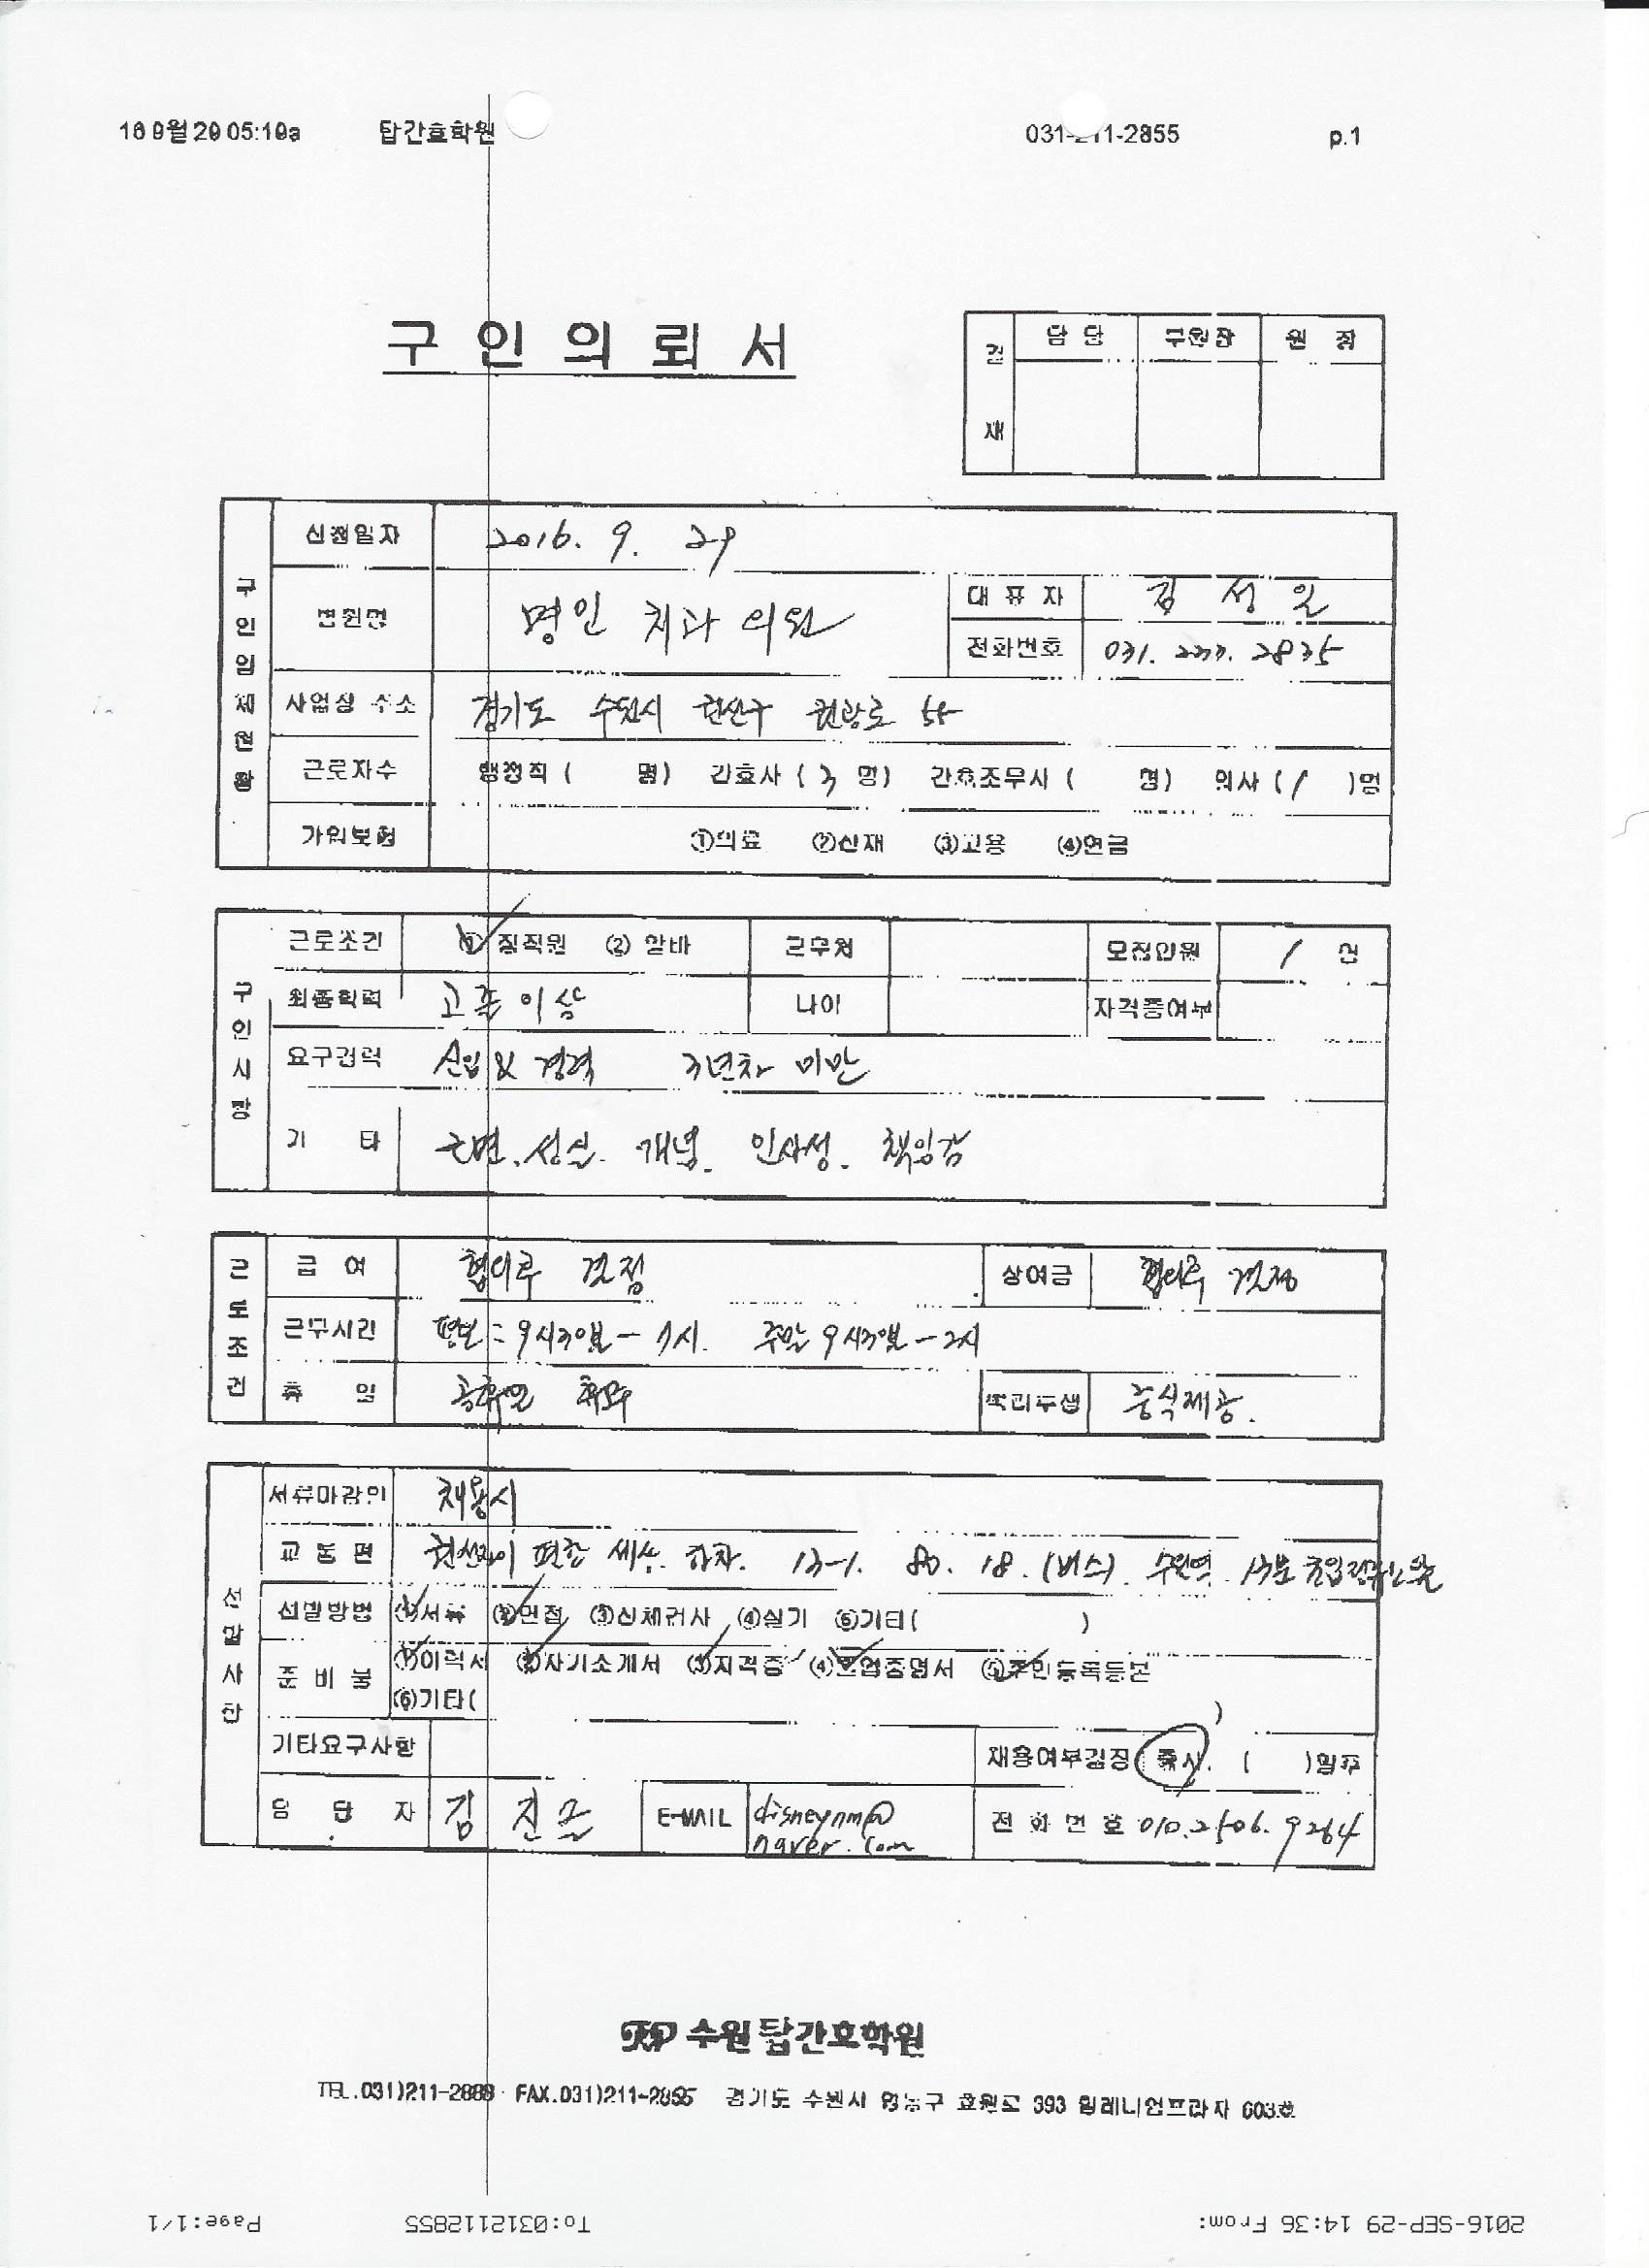 16 9월 29 05:19a 탑간호학원 031-211-2855 p.1
구 인 의 뢰 서
결 재 담 당 부원장 원 장
구 인 업 체 현 황
신청일자 2016. 9. 29
병원명 명인 치과 의원 대 표 자 김 성 일
전화번호 031. 233. 2835
사업장 주소 경기도 수원시 권선구 권광로 55
근로자수 행정직 ( 명) 간호사 ( 3 명) 간호조무사 ( 명) 의사 ( 1 )명
가입보험 ①의료 ②산재 ③고용 ④연금
구 인 사 항
근로조건 ① 정직원 ② 알바 근무처 모집인원 1 인
최종학력 고졸 이상 나이 자격증여부
요구경력 신입 & 경력 3년차 미만
기 타 근면. 성실. 개념. 인사성. 책임감
근 로 조 건
급 여 협의후 결정 상여금 협의후 결정
근무시간 평일 : 9시30분 - 7시. 주말 9시30분 - 2시
휴 일 공휴일 휴무 복리후생 중식제공.
선 발 사 항
서류마감일 채용시
교 통 편 권선자이 편한 세상 하차. 13-1. 80. 18. (버스). 수원역 13분
선발방법 ①서류 ②면접 ③신체검사 ④실기 ⑤기타( )
준 비 물 ①이력서 ②자기소개서 ③자격증 ④졸업증명서 ⑤주민등록등본
⑥기타( )
기타요구사항 채용여부결정 즉시. ( )일후
담 당 자 김 진 E-MAIL disneynm@
naver.com 전 화 번 호 010.2506.9264
TOP 수원 탑간호학원
TEL.031)211-2888 · FAX.031)211-2855 경기도 수원시 영통구 효원로 393 밀레니엄프라자 603호
2016-SEP-29 14:36 From: To:0312112855 Page:1/1